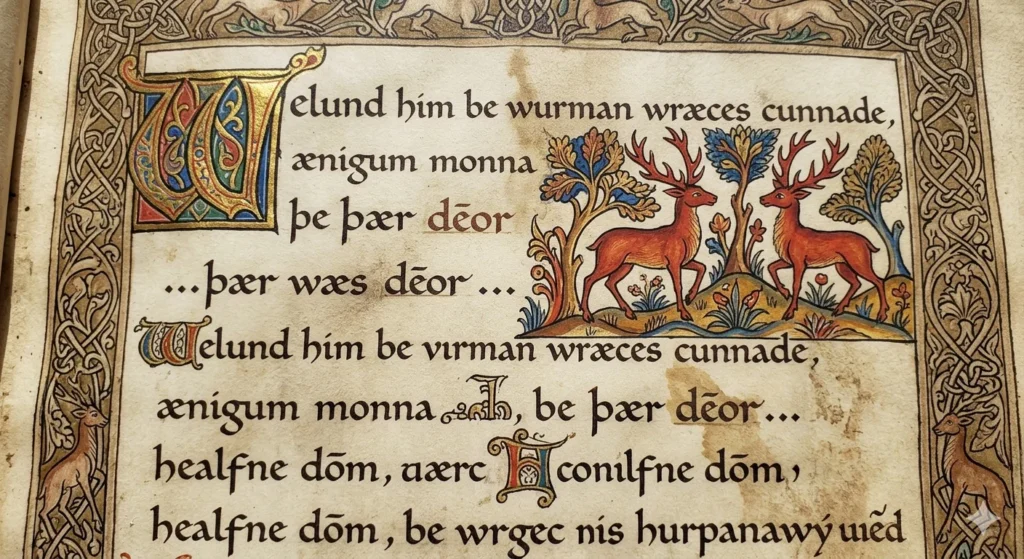 Welund him be wurman wræces cunnade,
ænigum monna
þe þær dēor
...þær wæs dēor ...
Welund him be vırman wræces cunnade,
ænigum monna , be þær dēor...
healfne dōm, uærc conilfne dōm,
healfne dōm, be wrgec nis hurpanawý uıēd